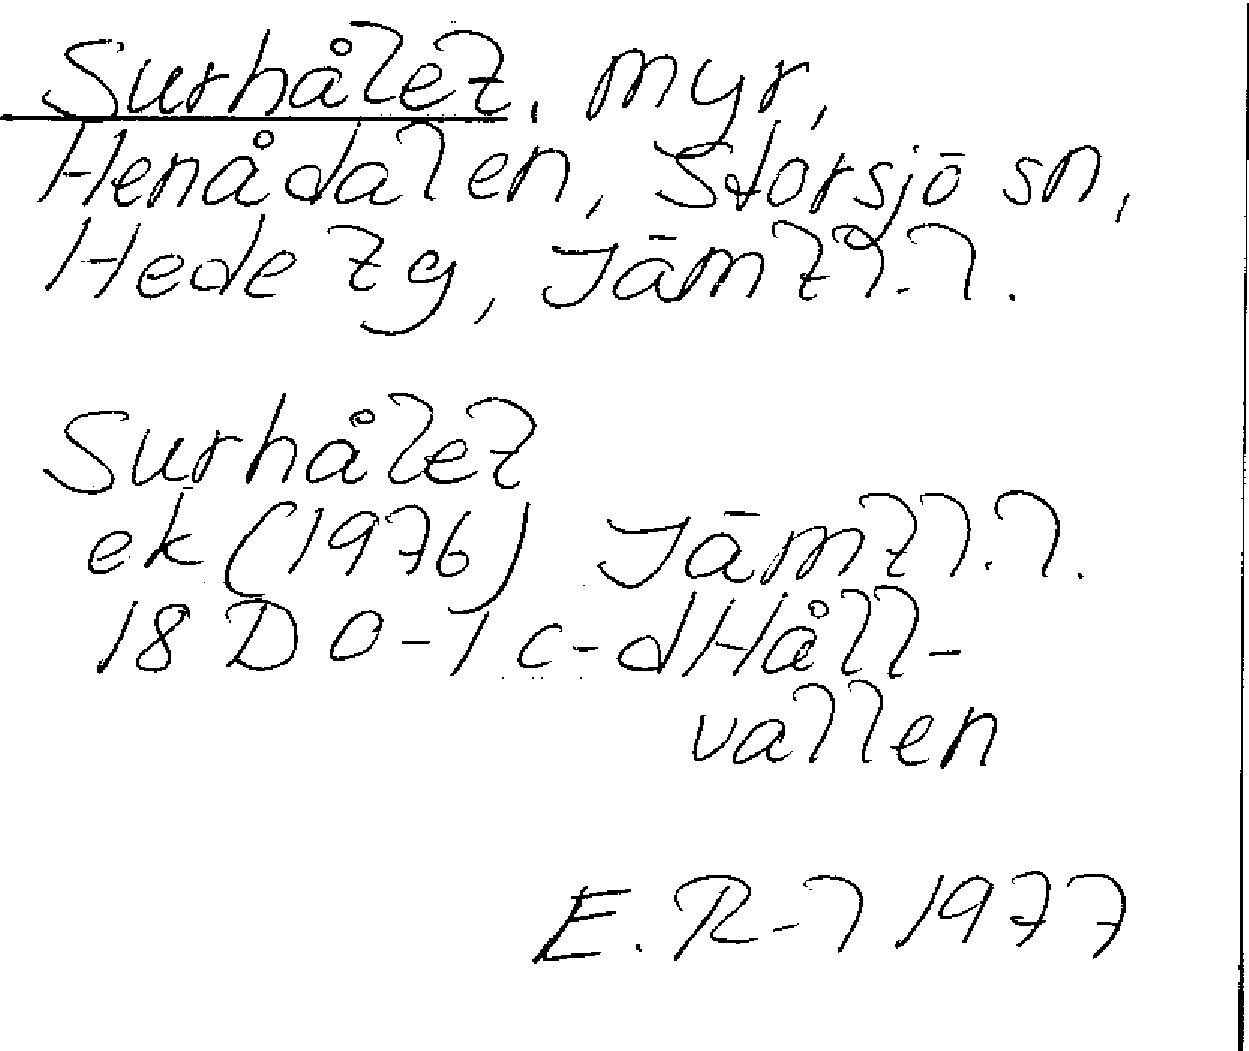 Surhålet, myr,
Henådalen, Storsjö sn,
Hede tg, Jämtl.l.
Surhålet
ek (1976) Jämtl.l.
18D 0-1 c-d Håll-
vallen
E. R-l 1977